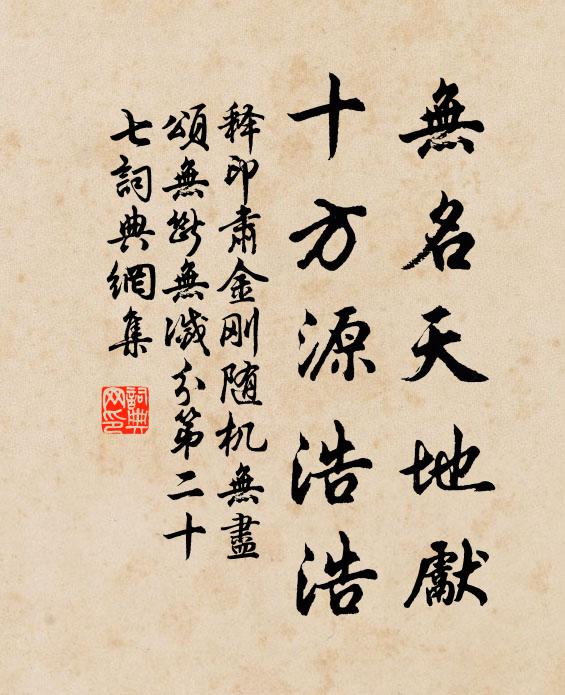 無名天地獻
十方源浩浩
释印肃金刚随机無盡
頌無斷無滅分第二十
七詞典網集
詞典网印